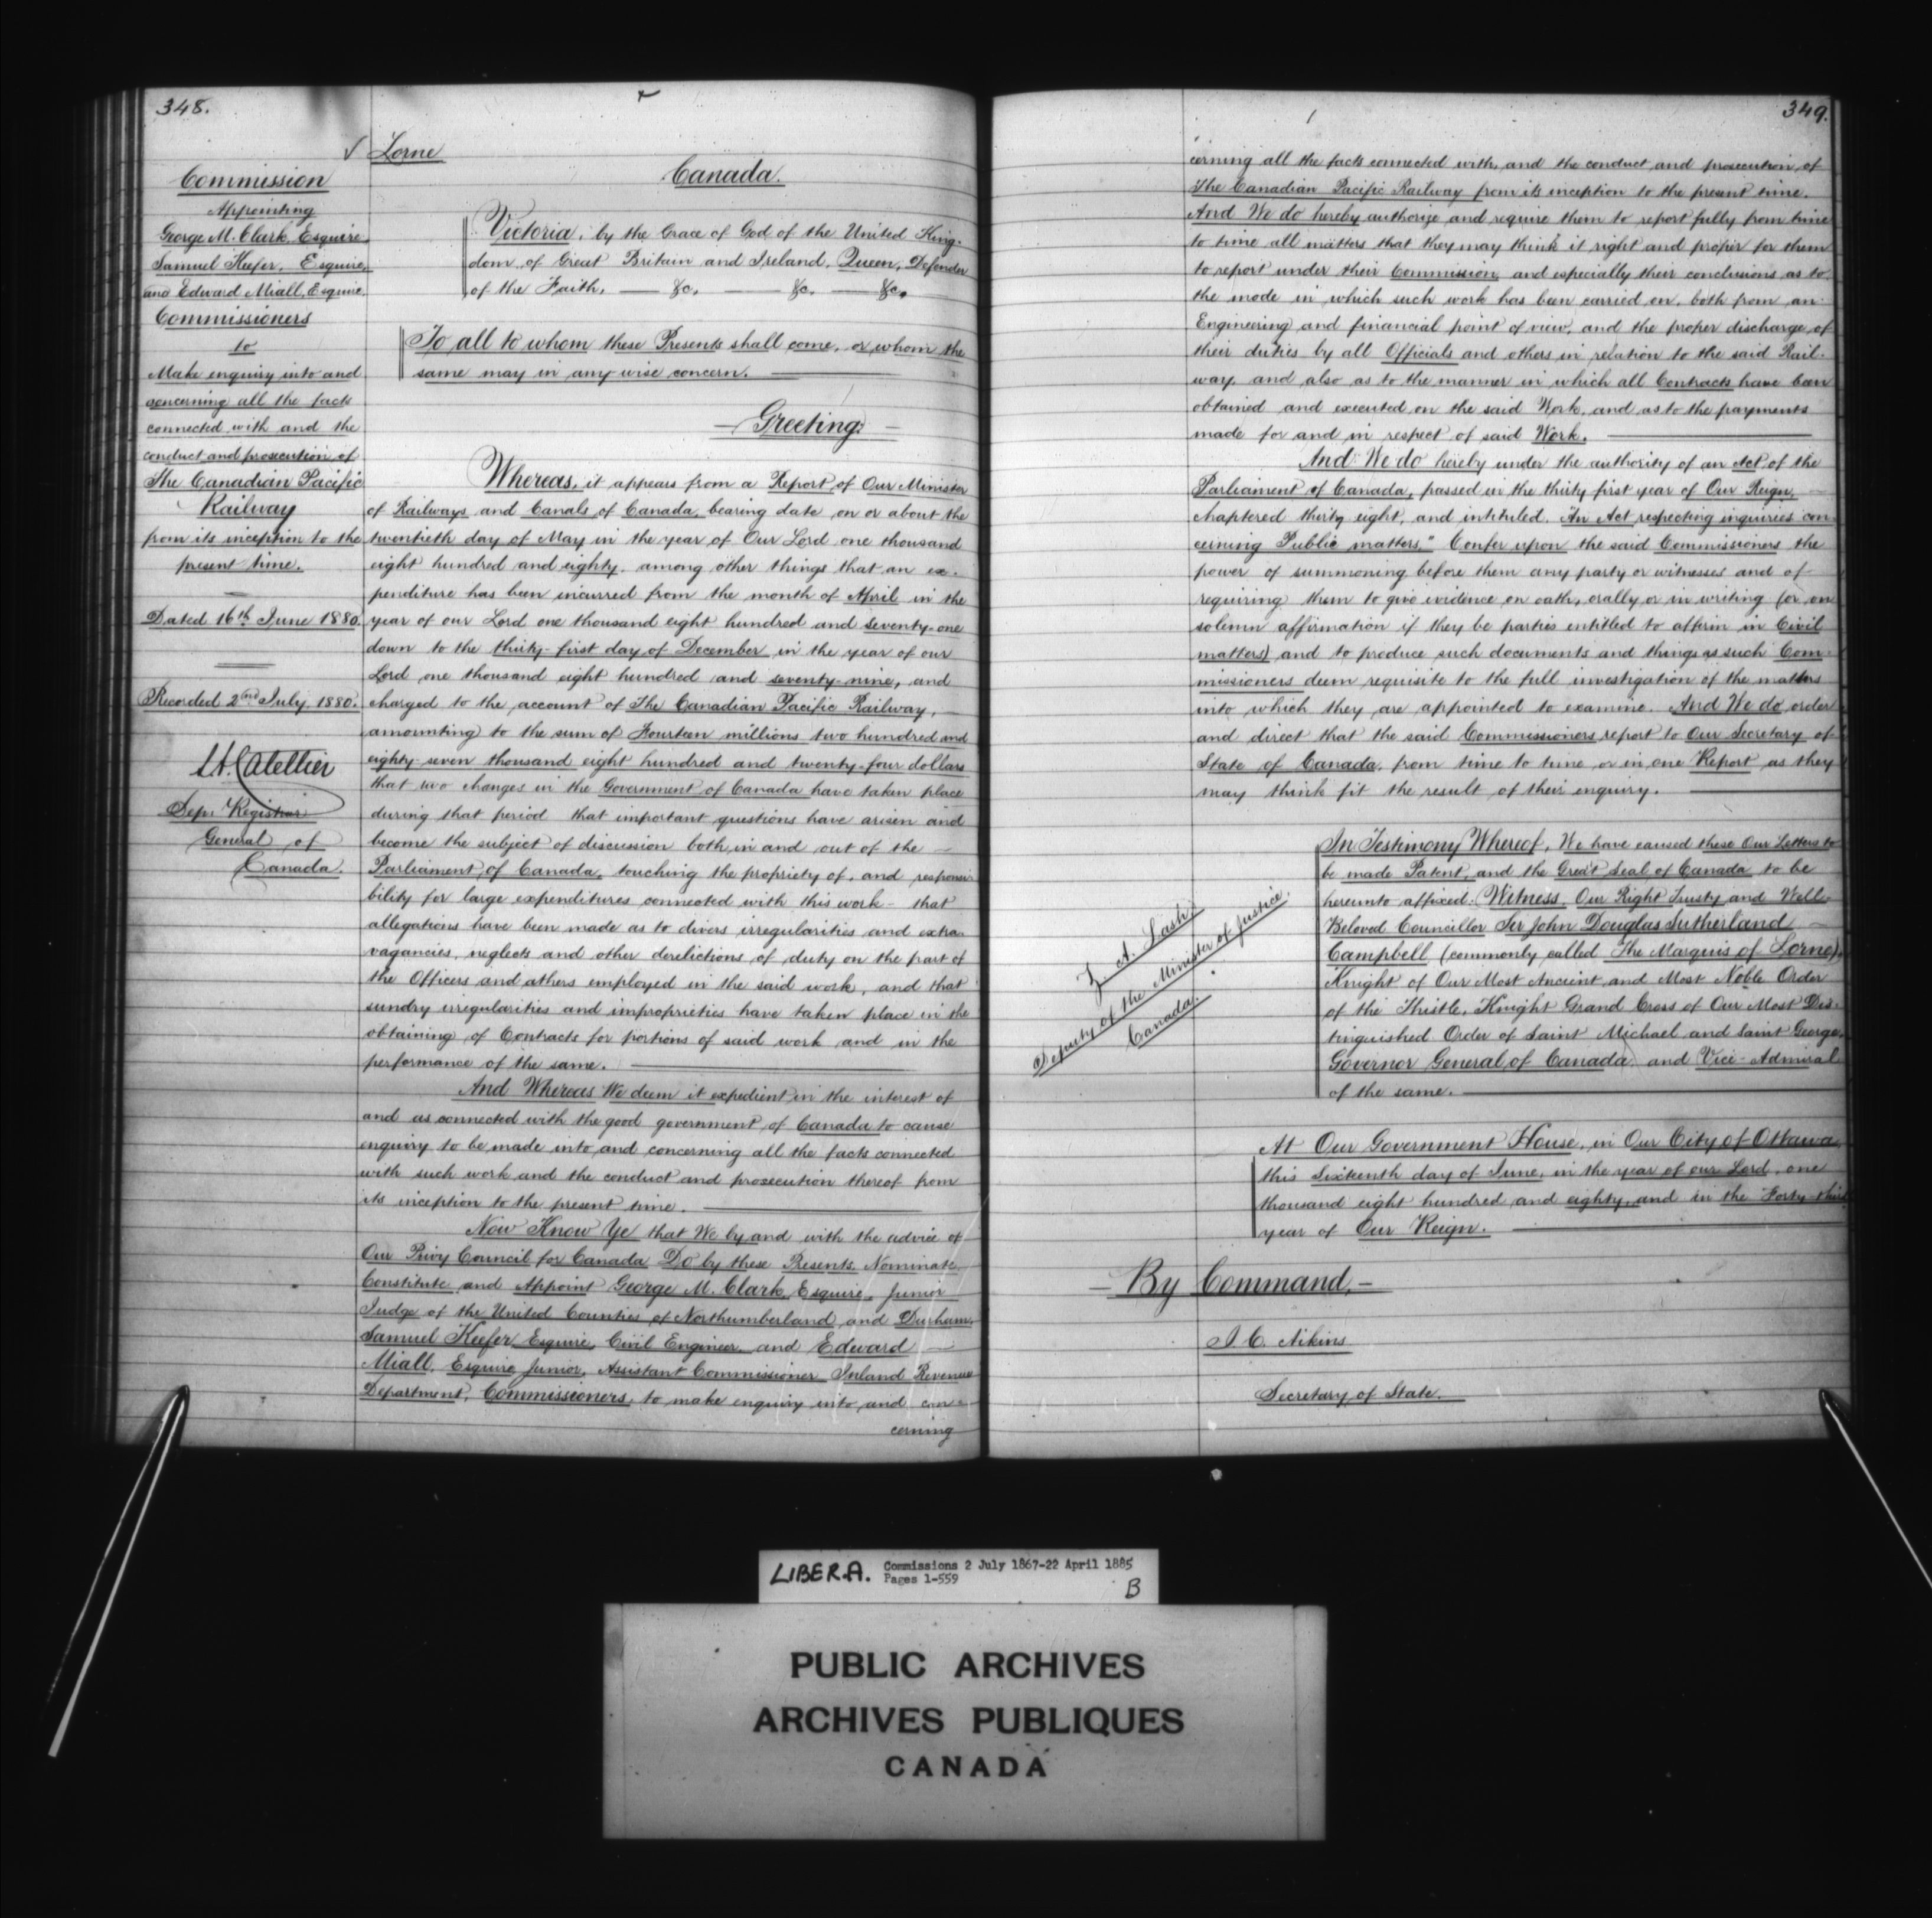 348.
Lorne
Commission
Appointing
George M. Clark, Esquire,
Samuel Keefer, Esquire,
and Edward Miall, Esquire.
Commissioners
to
Make enquiry into and
concerning all the facts
connected with and the
conduct and prosecution of
The Canadian Pacific
Railway
from its inception to the
present time.
Dated 16th June 1880.
Recorded 2nd July, 1880.
L. A. Catellier
Dep. Registrar
General of
Canada.
Canada.
Victoria, by the Grace of God of the United King-
dom of Great Britain and Ireland, Queen, Defender
of the Faith, — &c. — &c. — &c.
To all to whom these Presents shall come, or whom the
same may in any wise concern.
— Greeting: —
Whereas, it appears from a Report of Our Minister
of Railways and Canals of Canada, bearing date on or about the
twentieth day of May in the year of Our Lord one thousand
eight hundred and eighty, among other things that an ex-
penditure has been incurred from the month of April in the
year of our Lord one thousand eight hundred and seventy-one
down to the thirty-first day of December in the year of our
Lord one thousand eight hundred and seventy-nine, and
charged to the account of The Canadian Pacific Railway,
amounting to the sum of Fourteen millions two hundred and
eighty-seven thousand eight hundred and twenty-four dollars
that two changes in the Government of Canada have taken place
during that period that important questions have arisen and
become the subject of discussion both in and out of the —
Parliament of Canada, touching the propriety of, and responsi-
bility for large expenditures connected with this work - that
allegations have been made as to divers irregularities and extra-
vagancies, neglects and other derelictions of duty on the part of
the Officers and others employed in the said work, and that
sundry irregularities and improprieties have taken place in the
obtaining of Contracts for portions of said work and in the
performance of the same.
And Whereas We deem it expedient in the interest of
and as connected with the good government of Canada to cause
enquiry to be made into and concerning all the facts connected
with such work and the conduct and prosecution thereof from
its inception to the present time.
Now Know Ye that We by and with the advice of
Our Privy Council for Canada Do by these Presents, Nominate
Constitute and Appoint George M. Clark, Esquire, Junior
Judge of the United Counties of Northumberland and Durham,
Samuel Keefer Esquire, Civil Engineer, and Edward —
Miall, Esquire Junior, Assistant Commissioner Inland Revenue
Department, Commissioners, to make enquiry into and con-
cerning
349.
cerning all the facts connected with, and the conduct and prosecution of
The Canadian Pacific Railway from its inception to the present time.
And We do hereby authorize and require them to report fully from time
to time all matters that they may think it right and proper for them
to report under their Commission, and especially their conclusions as to
the mode in which such work has been carried on, both from an
Engineering and financial point of view, and the proper discharge of
their duties by all Officials and others in relation to the said Rail-
way, and also as to the manner in which all Contracts have been
obtained and executed on the said Work, and as to the payments
made for and in respect of said Work.
And We do hereby under the authority of an Act of the
Parliament of Canada, passed in the thirty first year of Our Reign, —
chaptered thirty eight, and intituled. "An Act respecting inquiries con-
cerning Public matters," Confer upon the said Commissioners the
power of summoning before them any party or witnesses and of
requiring them to give evidence on oath, orally or in writing (or on
solemn affirmation if they be parties entitled to affirm in Civil
matters) and to produce such documents and things as such Com-
missioners deem requisite to the full investigation of the matters
into which they are appointed to examine. And We do order
and direct that the said Commissioners report to Our Secretary of
State of Canada, from time to time or in one Report as they
may think fit the result of their enquiry.
In Testimony Whereof, We have caused these Our Letters to
be made Patent, and the Great Seal of Canada to be
hereunto affixed: Witness, Our Right Trusty and Well-
Beloved Councillor Sir John Douglas Sutherland —
Campbell (commonly called The Marquis of Lorne),
Knight of Our Most Ancient and Most Noble Order
of the Thistle, Knight Grand Cross of Our Most Dis-
tinguished Order of Saint Michael and Saint George,
Governor General of Canada and Vice-Admiral
of the same.
Z. A. Lash
Deputy of the Minister of Justice,
Canada.
At Our Government House, in Our City of Ottawa
this Sixteenth day of June, in the year of our Lord, one
thousand eight hundred and eighty, and in the Forty-third
year of Our Reign.
— By Command, —
J. C. Aikins
Secretary of State.
LIBER.A. Commissions 2 July 1867-22 April 1885
Pages 1-559
B
PUBLIC ARCHIVES
ARCHIVES PUBLIQUES
CANADA